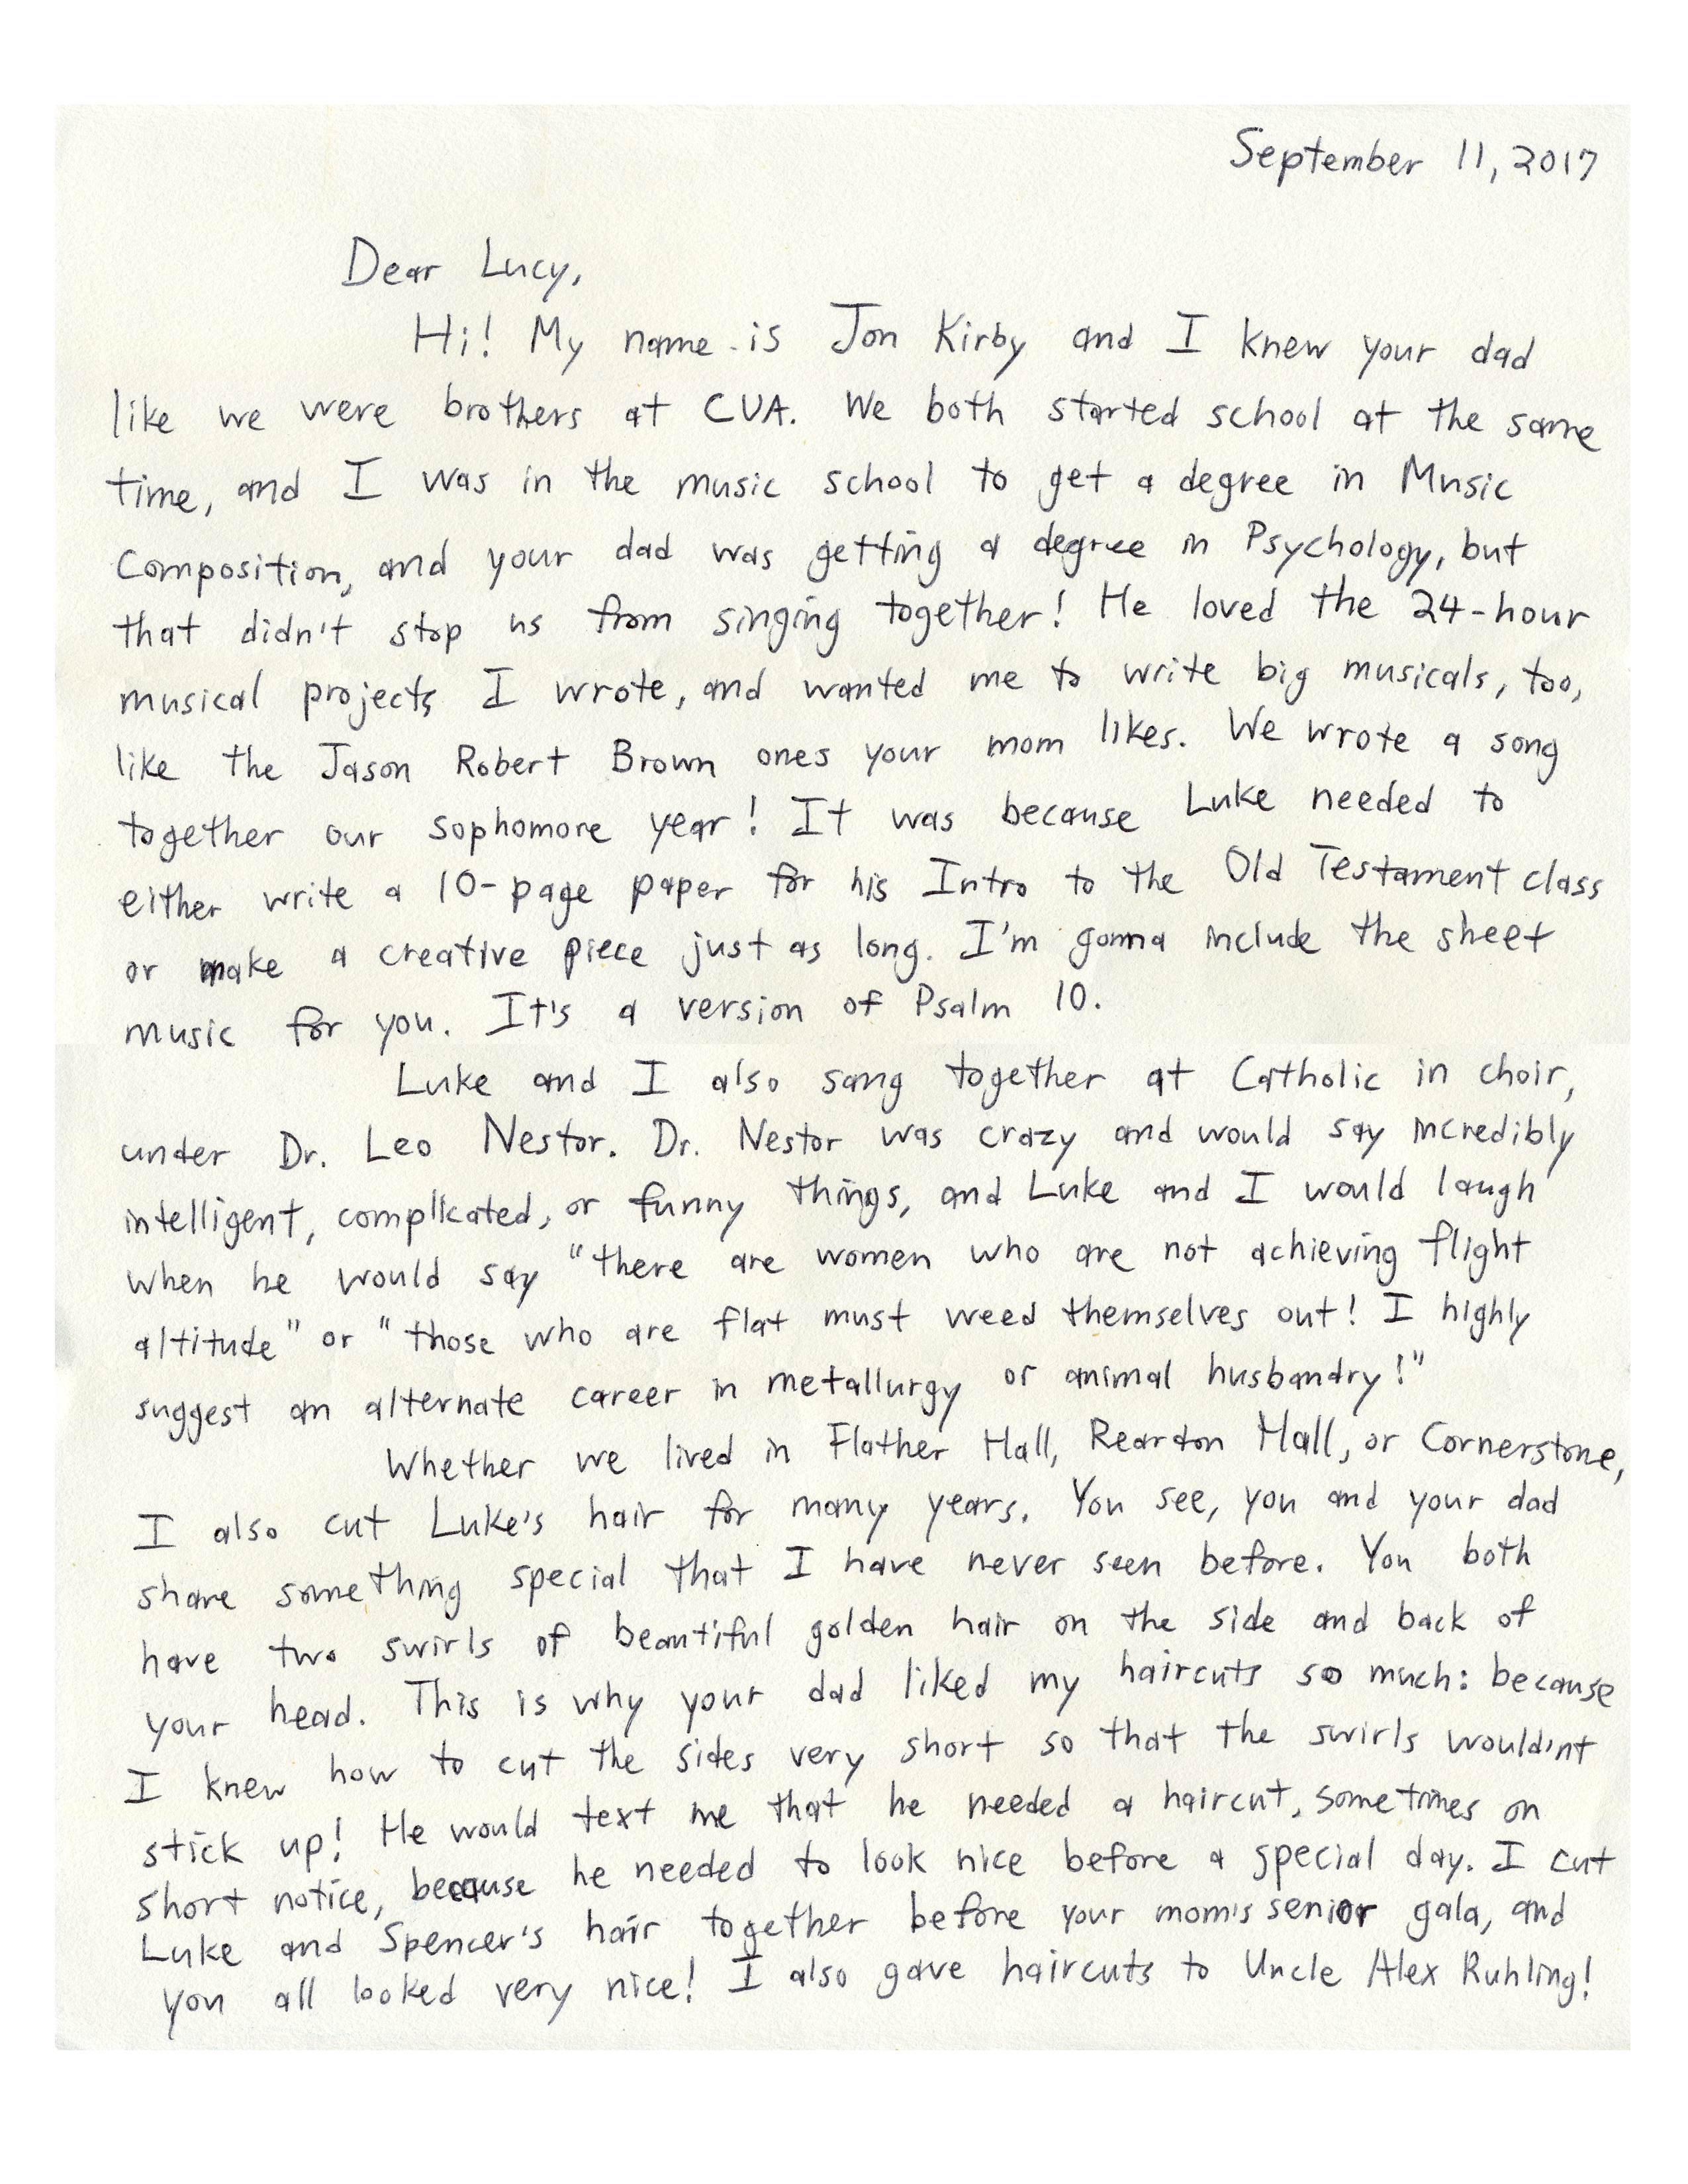 September 11, 2017
Dear Lucy,
Hi! My name is Jon Kirby and I knew your dad
like we were brothers at CUA. We both started school at the same
time, and I was in the music school to get a degree in Music
Composition, and your dad was getting a degree in Psychology, but
that didn't stop us from singing together! He loved the 24-hour
musical projects I wrote, and wanted me to write big musicals, too,
like the Jason Robert Brown ones your mom likes. We wrote a song
together our sophomore year! It was because Luke needed to
either write a 10-page paper for his Intro to the Old Testament class
or make a creative piece just as long. I'm gonna include the sheet
music for you. It's a version of Psalm 10.
Luke and I also sang together at Catholic in choir,
under Dr. Leo Nestor. Dr. Nestor was crazy and would say incredibly
intelligent, complicated, or funny things, and Luke and I would laugh
when he would say "there are women who are not achieving flight
altitude" or "those who are flat must weed themselves out! I highly
suggest an alternate career in metallurgy or animal husbandry!"
Whether we lived in Flather Hall, Reardon Hall, or Cornerstone,
I also cut Luke's hair for many years. You see, you and your dad
share something special that I have never seen before. You both
have two swirls of beautiful golden hair on the side and back of
your head. This is why your dad liked my haircuts so much: because
I knew how to cut the sides very short so that the swirls wouldn't
stick up! He would text me that he needed a haircut, sometimes on
short notice, because he needed to look nice before a special day. I cut
Luke and Spencer's hair together before your mom's senior gala, and
you all looked very nice! I also gave haircuts to Uncle Alex Ruhling!